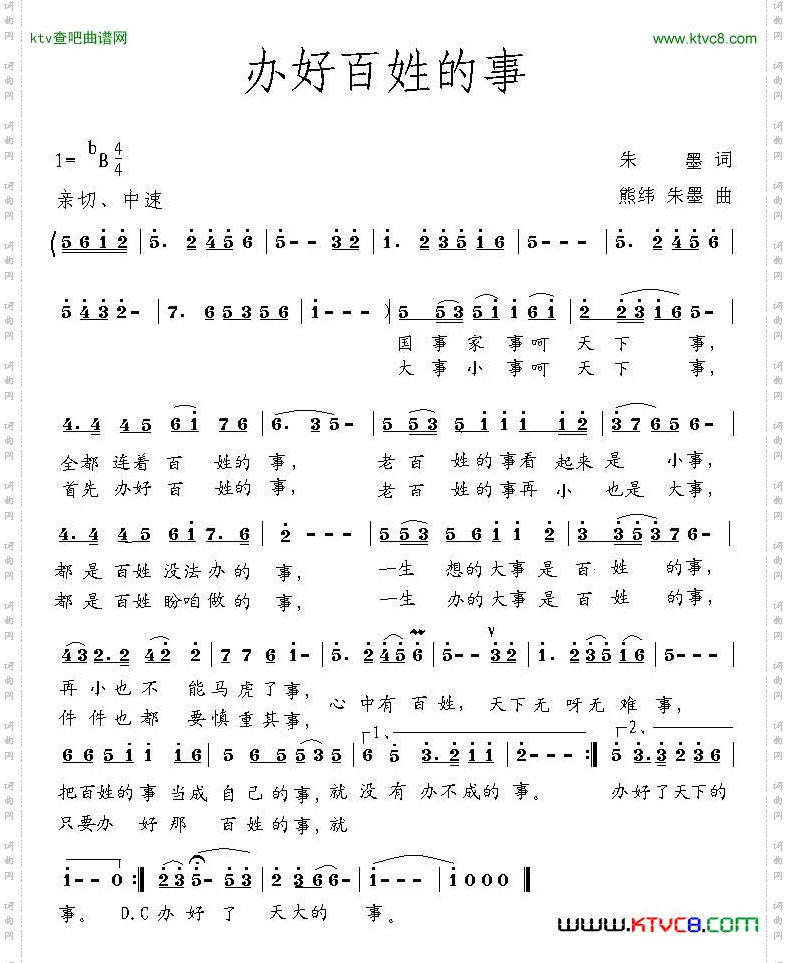 ktv查吧曲谱网
www.ktvc8.com
办好百姓的事
1= bB 4/4
朱 墨 词
亲切、中速
熊纬 朱墨 曲
(5 6 1 2 | 5. 2 4 5 6 | 5 - - 3 2 | 1. 2 3 5 1 6 | 5 - - - | 5. 2 4 5 6 |
5 4 3 2 - | 7. 6 5 3 5 6 | 1 - - - ) 5 5 3 5 1 1 6 1 | 2 2 3 1 6 5 - |
国 事 家 事呵 天 下 事,
大 事 小 事呵 天 下 事,
4. 4 4 5 6 1 7 6 | 6. 3 5 - | 5 5 3 5 1 1 1 2 | 3 7 6 5 6 - |
全都 连着 百 姓的 事, 老 百 姓的事看 起来 是 小事,
首先 办好 百 姓的 事, 老 百 姓的事再 小 也是 大事,
4. 4 4 5 6 1 7. 6 | 2 - - - | 5 5 3 5 6 1 2 | 3 3 5 3 7 6 - |
都 是 百姓 没法 办的 事, 一生 想的大事 是 百 姓 的事,
都 是 百姓 盼咱 做的 事, 一生 办的大事 是 百 姓 的事,
4 3 2. 2 4 2 2 | 7 7 6 1 - | 5. 2 4 5 6 | 5 - - 3 2 | 1. 2 3 5 1 6 | 5 - - - |
再 小 也 不 能 马 虎 了 事, 心 中 有 百 姓, 天 下 无 呀 无 难 事,
件 件 也 都 要 慎 重 其 事,
1、 2、
6 6 5 1 1 1 6 | 5 6 5 5 3 5 | 6 5 3. 2 1 1 | 2 - - - :‖ 5 3. 3 2 3 6 |
把百姓的 事 当成 自 己 的 事, 就 没 有 办 不成的 事。 办好了天下的
只要办 好 那 百 姓的事, 就
1 - - 0 :‖ 2 3 5 - 5 3 | 2 3 6 6 - | 1 - - - | 1 0 0 0 ‖
事。 D.C 办 好 了 天大的 事。
WWW.KTVC8.COM
词曲网